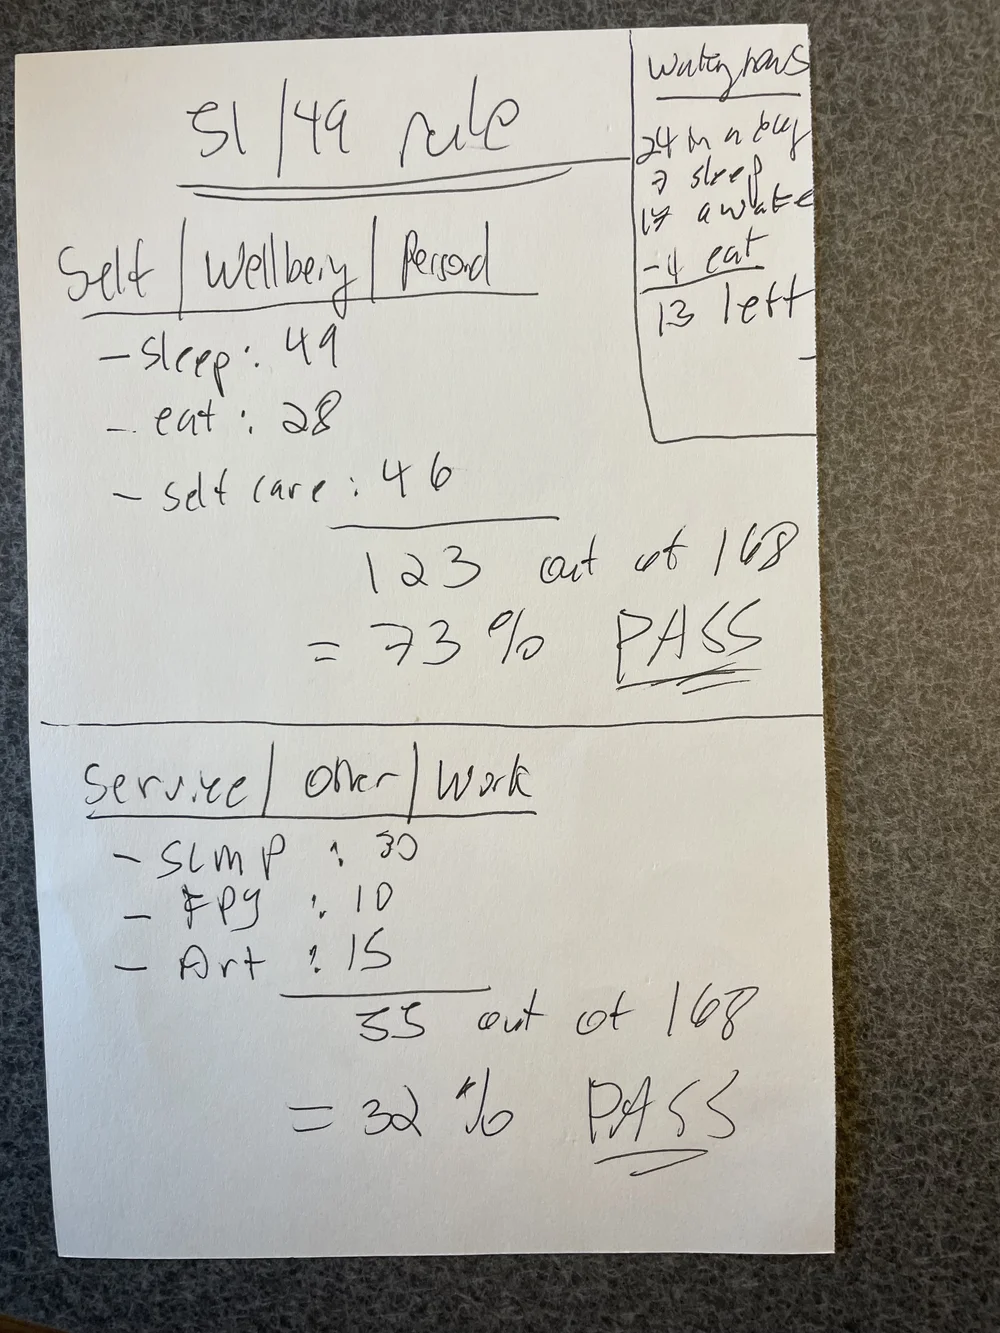 51/49 rule
Self / Wellbeing / Personal
- sleep: 49
- eat: 28
- self care: 46
123 out of 168
= 73% PASS
Waking hours
24 in a day
7 sleep
17 awake
-4 eat
13 left
Service / Other / Work
- SLMP: 30
- FPY: 10
- Art: 15
55 out of 168
= 32% PASS